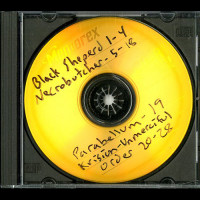 Memorex
Black Sheperd 1-4
Necrobutcher - 5-18
Parabellum - 19
Krisiun - Unmerciful
Order 20-28